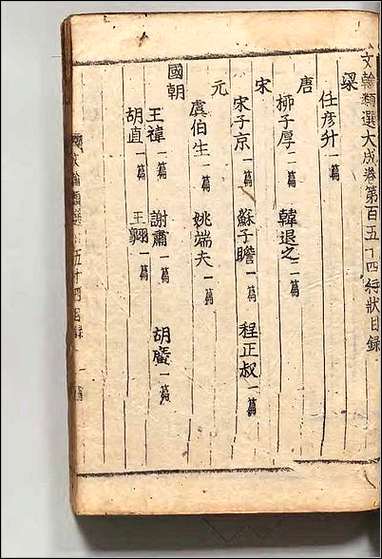 文翰類選大成卷第百五十四行狀目錄
梁
任彥升一篇
唐
柳子厚二篇 韓退之一篇
宋
宋子京一篇 蘇子瞻一篇 程正叔一篇
元
虞伯生一篇 姚端夫一篇
國朝
王禕一篇 謝肅一篇 胡廣一篇
胡直一篇 王翱一篇